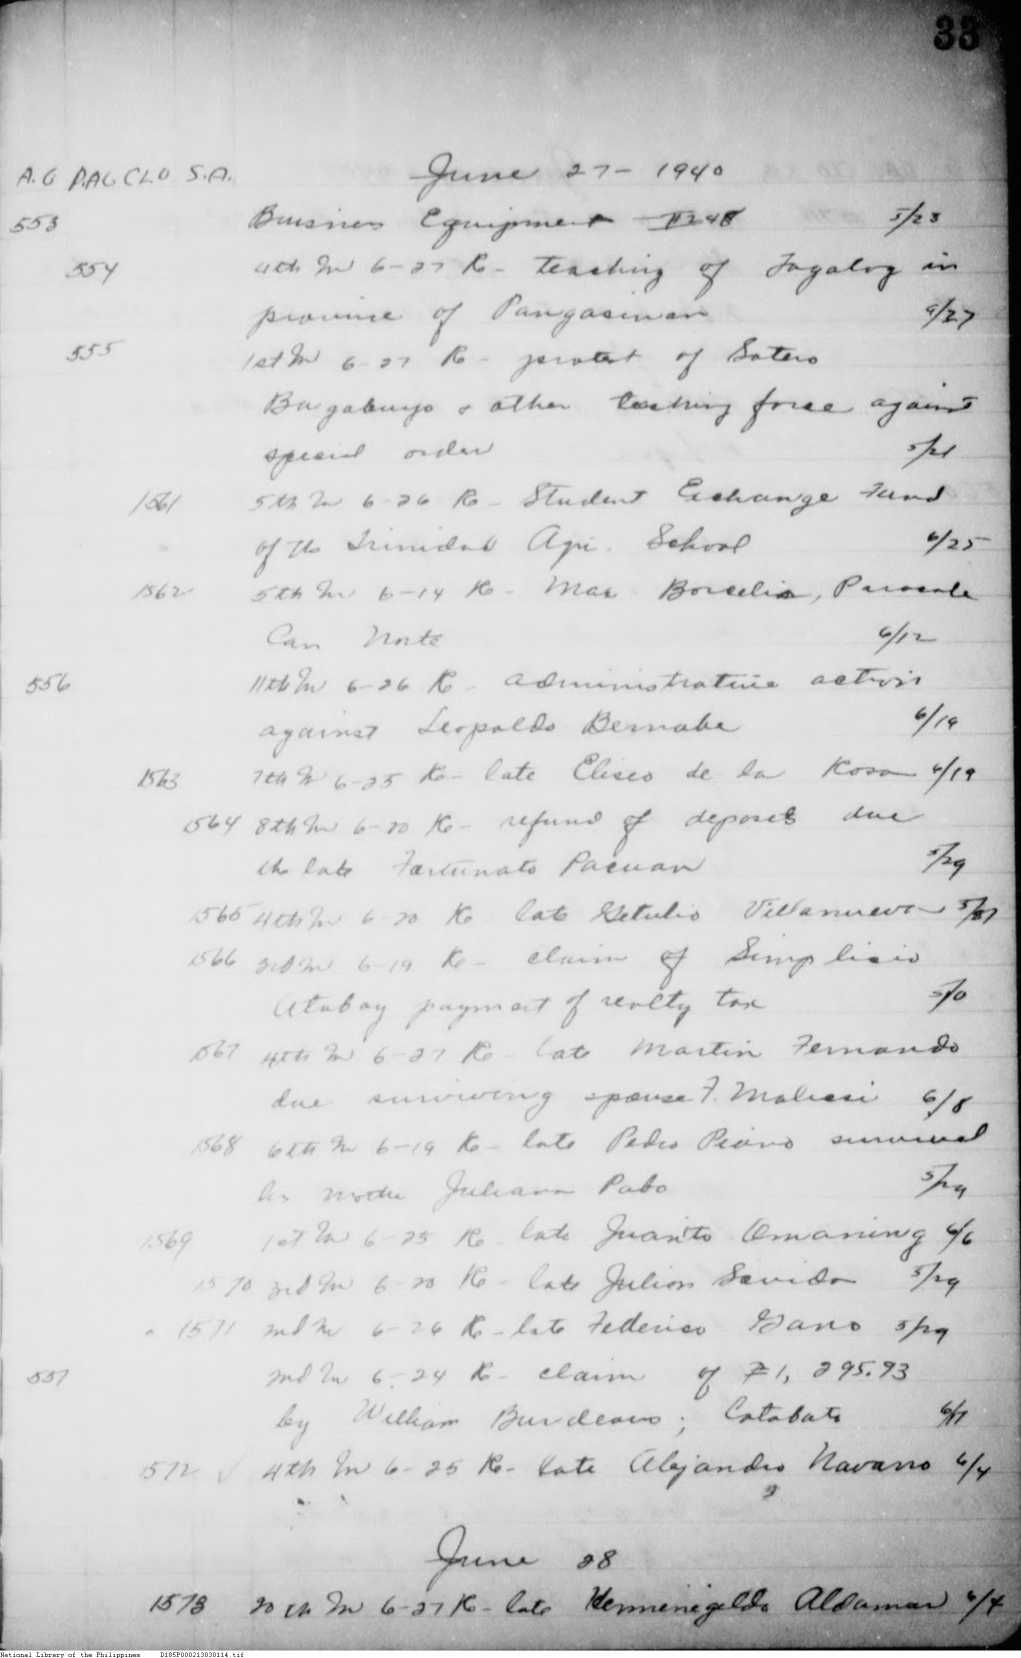 33
A.G PAG CLO S.A. June 27 - 1940
553 Business Equipment 5/23
554 4th In 6-27 Re - teaching of Tagalog in
province of Pangasinan 9/27
555 1st In 6-27 Re - protest of Sotero
Bugabuyo & other teaching force against
special order 5/21
1561 5th In 6-26 Re - Student Exchange Fund
of the Trinidad Agri. School 6/25
1562 5th In 6-14 Re - Mar Borcelis, Paracale
Cam Norte 6/12
556 11th In 6-26 Re - administrative action
against Leopoldo Bernabe 6/19
1563 7th In 6-25 Re - late Eliseo de la Rosa 6/19
1564 8th In 6-20 Re - refund of deposits due
the late Fortunato Pacuan 5/29
1565 4th In 6-20 Re late Getulio Villanueva
1566 3rd In 6-19 Re - claim of Simplicio
Atabay payment of realty tax
1567 4th In 6-27 Re - late Martin Fernando
due surviving spouse F. Malicsi 6/8
1568 6th In 6-19 Re - late Pedro survived
by mother Juliana Pabo 5/29
1569 1st In 6-25 Re late Juanito Omaning 6/6
1570 3rd In 6-20 Re - late Julian Savida 5/29
1571 2nd In 6-26 Re - late Federico Gano 5/29
557 2nd In 6-24 Re - claim of ₱1,295.93
by William Burdeaus; Cotabato
1572 ✓ 4th In 6-25 Re - late Alejandro Navarro 6/4
June 28
1573 20th In 6-27 Re - late Hermenegildo Aldamar 6/4
National Library of the Philippines D185P000213030114.tif